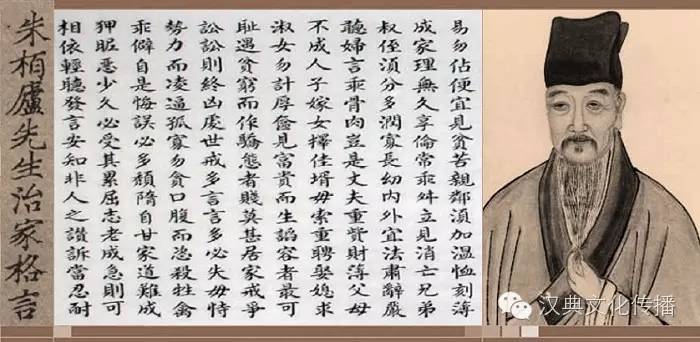 易勿佔便宜見貧苦親鄰須加溫恤刻薄
成家理無久享倫常乖舛立見消亡兄弟
叔侄須分多潤寡長幼內外宜法肅辭嚴
聽婦言乖骨肉豈是丈夫重貲財薄父母
不成人子嫁女擇佳壻毋索重聘娶媳求
淑女勿計厚奩見富貴而生諂容者最可
耻遇貧窮而作驕態者賤莫甚居家戒爭
訟訟則終凶處世戒多言言多必失毋恃
勢力而凌逼孤寡勿貪口腹而恣殺牲禽
乖僻自是悔誤必多頹隋自甘家道難成
狎昵惡少久必受其累屈志老成急則可
相依輕聽發言安知非人之譖訴當忍耐
朱柏廬先生治家格言
汉典文化传播